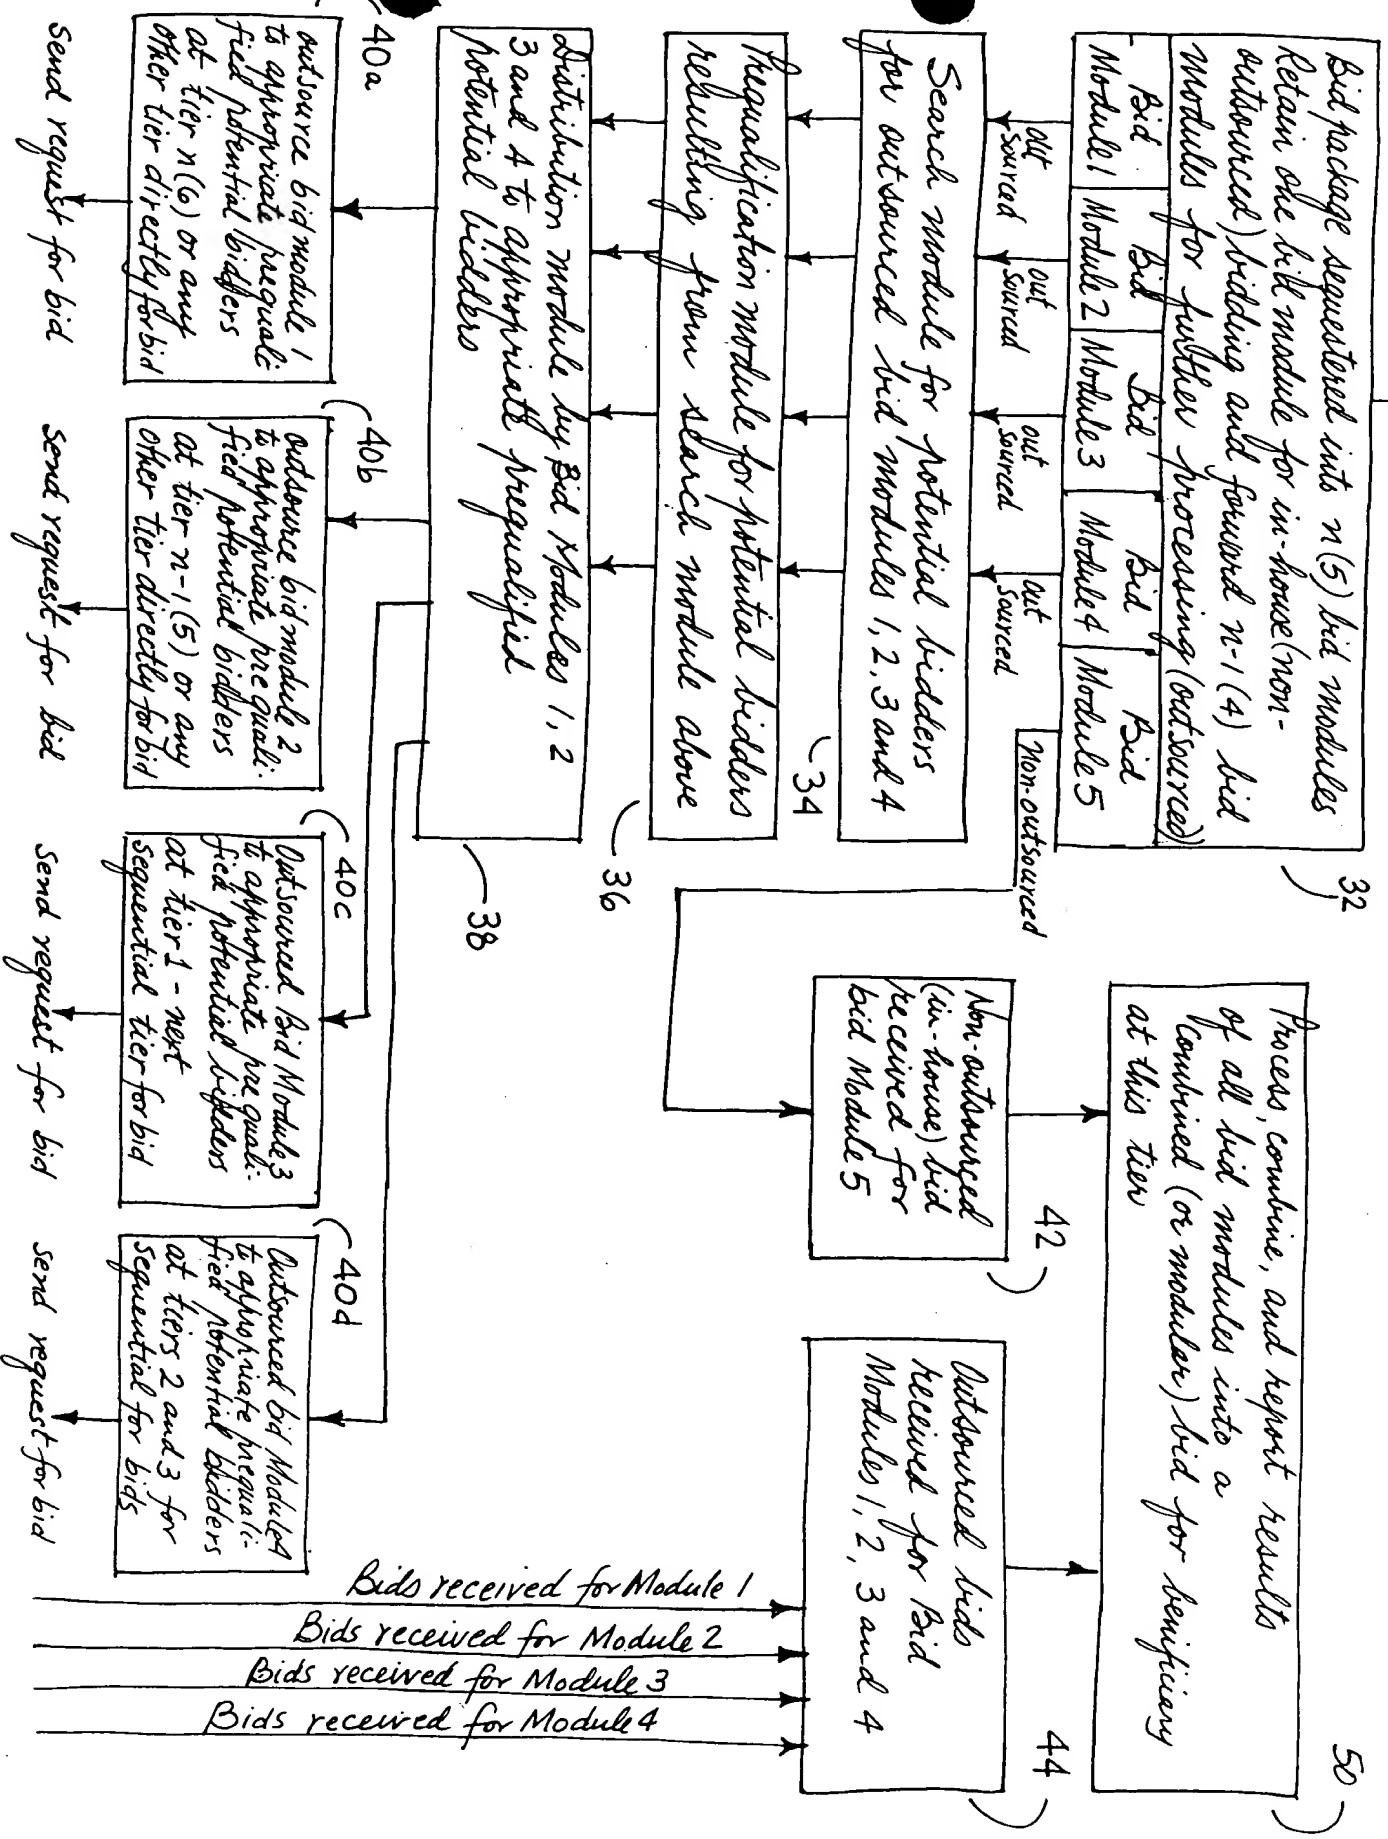 Bid package sequestered into n(5) bid modules
Retain one bid module for in-house (non-
outsourced) bidding and forward n-1(4) bid
modules for further processing (outsourced)
32
Bid
Module 1
Bid
Module 2
Bid
Module 3
Bid
Module 4
Bid
Module 5
out
sourced
out
sourced
out
sourced
out
sourced
Non-outsourced
Search module for potential bidders
for outsourced bid modules 1, 2, 3 and 4
34
Prequalification module for potential bidders
resulting from search module above
36
Distribution module by Bid Modules 1, 2
3 and 4 to appropriate prequalified
potential bidders
38
40a
outsource bid module 1
to appropriate prequali-
fied potential bidders
at tier n(6) or any
other tier directly for bid
Send request for bid
40b
outsource bid module 2
to appropriate prequali-
fied potential bidders
at tier n-1(5) or any
other tier directly for bid
Send request for bid
40c
Outsourced Bid Module 3
to appropriate prequali-
fied potential bidders
at tier 1 - next
sequential tier for bid
Send request for bid
40d
Outsourced bid Module 4
to appropriate prequali-
fied potential bidders
at tiers 2 and 3 for
sequential for bids
Send request for bid
Process, combine, and report results
of all bid modules into a
combined (or modular) bid for benificiary
at this tier
50
Non-outsourced
(in-house) bid
received for
bid Module 5
42
Outsourced bids
received for Bid
Modules 1, 2, 3 and 4
44
Bids received for Module 1
Bids received for Module 2
Bids received for Module 3
Bids received for Module 4